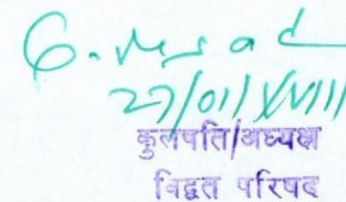 27/01/XVIII
कुलपति/अध्यक्ष
विद्वत परिषद